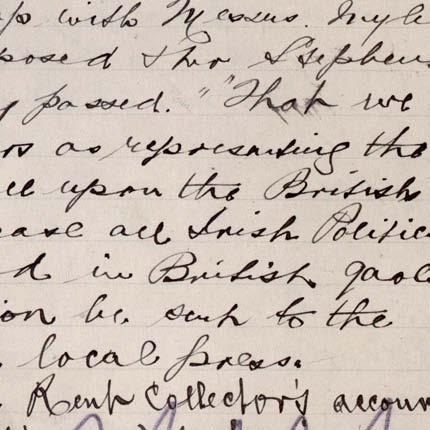 up with Messrs. Myle
posed Thos Stephens
y passed. "That we
rs as representing the
ll upon the British
ease all Irish Politic
d in British gaol
ion be sent to the
local press.
Rent Collector's accoun